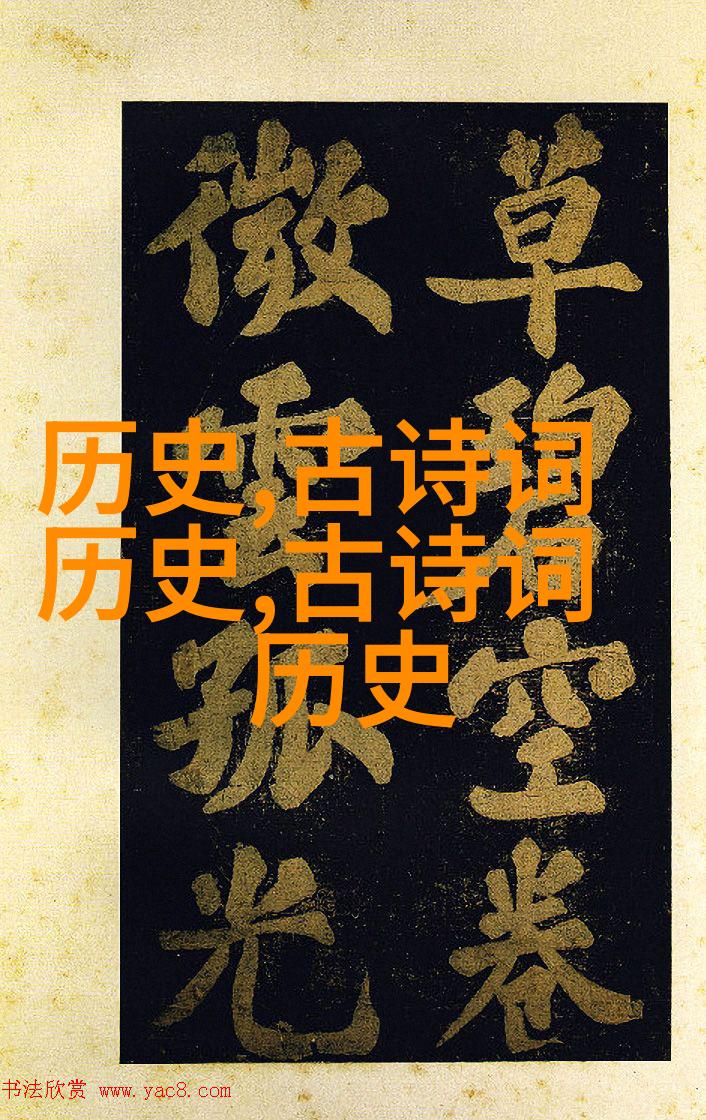 草碧空卷
微雲孤光
历史,古诗词
历史,古诗词
历史
书法欣赏 www.yac8.com